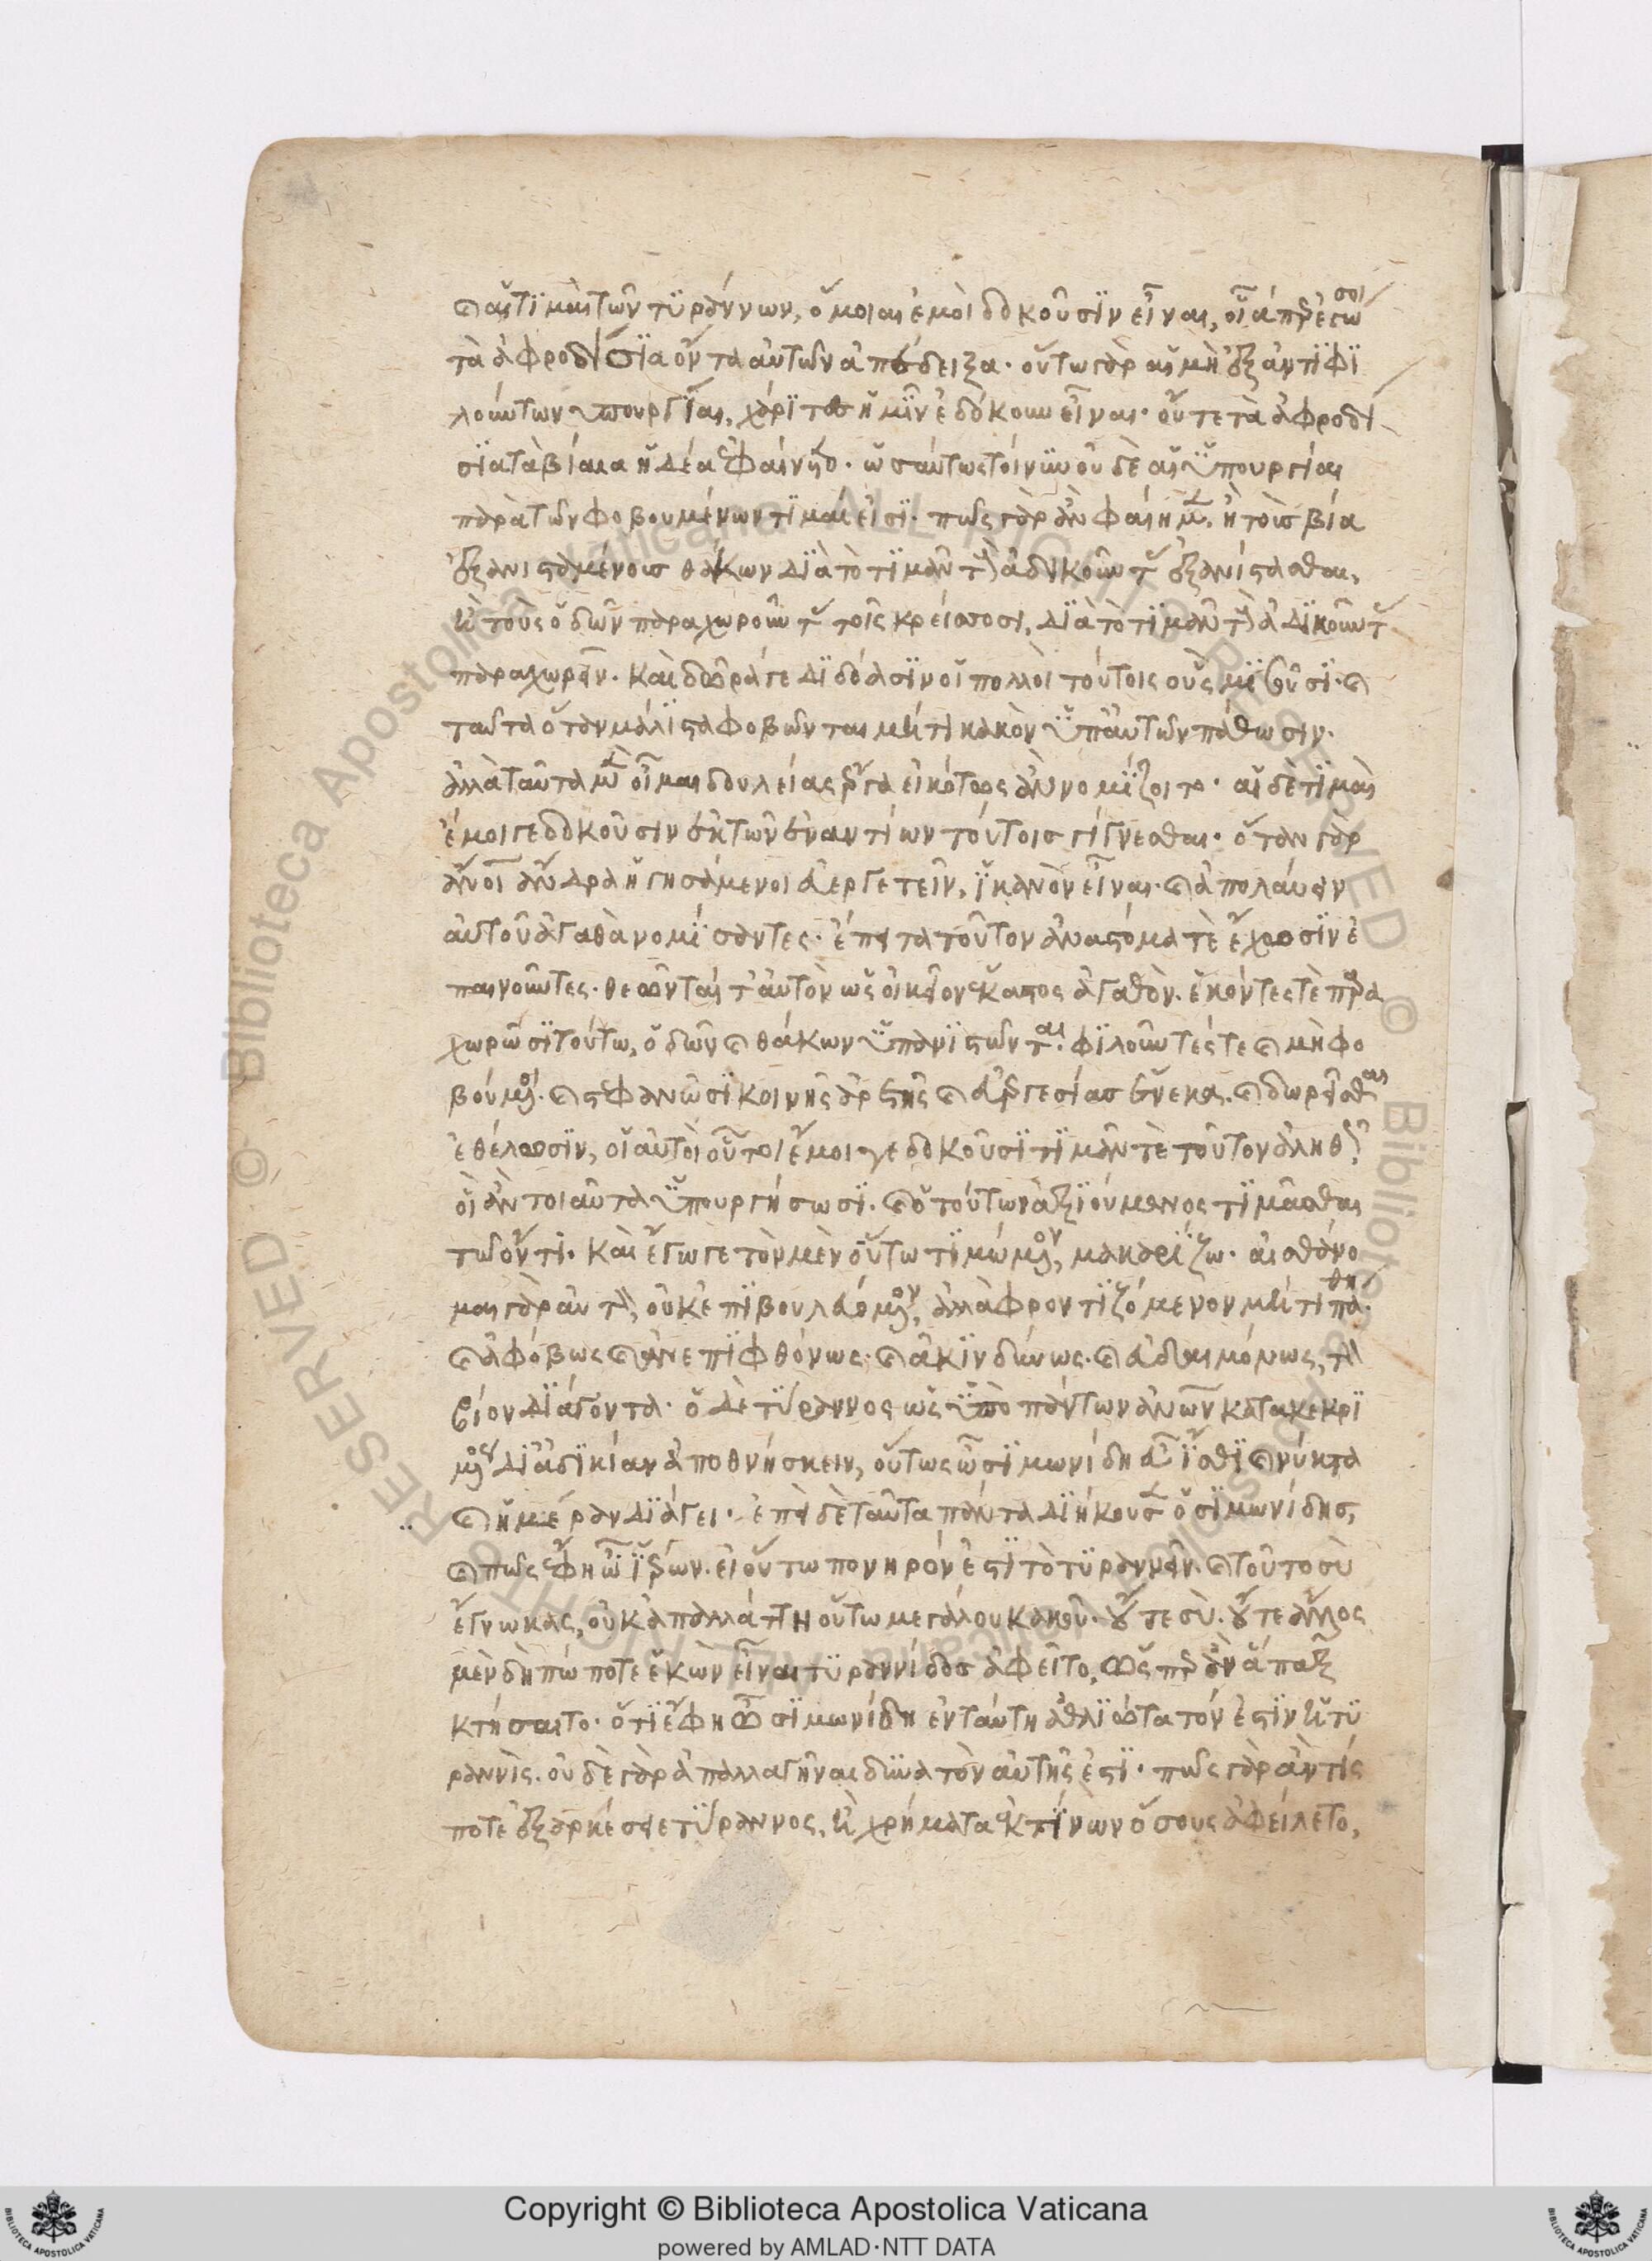 καὶ αἱ τιμαὶ τῶν τυράννων, ὅμοιαι ἐμοὶ δοκοῦσιν εἶναι, οἷάπερ ἐγώ σοι
τὰ ἀφροδίσια ὄντα αὐτῶν ἀπέδειξα· οὔτε γὰρ αἱ μὴ ἐξ ἀντιφι
λούντων ὑπουργίαι, χάριτες ἡμῖν ἐδόκουν εἶναι· οὔτε τὰ ἀφροδί
σια τὰ βίαια ἡδέα ἐφαίνετο· ὡσαύτως τοίνυν οὐδὲ αἱ ὑπουργίαι
παρὰ τῶν φοβουμένων τιμαί εἰσι· πῶς γὰρ ἂν φαίημεν, ἢ τοὺς βίᾳ
ἐξανισταμένους θάκων διὰ τὸ τιμᾶν τοὺς ἀδικοῦντας ἐξανίστασθαι,
ἢ τοὺς ὁδῶν παραχωροῦντας τοῖς κρείσσοσι, διὰ τὸ τιμᾶν τοὺς ἀδικοῦντας
παραχωρεῖν· καὶ δῶρά γε διδόασιν οἱ πολλοὶ τούτοις οὓς μισοῦσι· καὶ
ταῦτα ὅταν μάλιστα φοβῶνται μή τι κακὸν ὑπ' αὐτῶν πάθωσιν·
ἀλλὰ ταῦτα μὲν οἶμαι δουλείας ἔργα εἰκότως ἂν νομίζοιτο· αἱ δὲ τιμαὶ
ἔμοιγε δοκοῦσιν ἐκ τῶν ἐναντίων τούτοις γίγνεσθαι· ὅταν γὰρ
ἄνοι ἄνδρα ἡγησάμενοι εὐεργετεῖν, ἱκανὸν εἶναι· καὶ ἀπολαύειν
αὐτοῦ ἀγαθὰ νομίσαντες· ἔπειτα τοῦτον ἀνὰ στόμα τὲ ἔχωσιν ἐ
παινοῦντες· θεῶνταί τ' αὐτὸν ὡς οἰκεῖον ἕκαστος ἀγαθὸν· ἑκόντες τὲ παρα
χωρῶσι τούτω, ὁδῶν καὶ θάκων ὑπανιστῶνται· φιλοῦντές τε καὶ μὴ φο
βούμενοι· καὶ στεφανῶσι κοινῆς ἀρετῆς καὶ εὐεργεσίας ἕνεκα· καὶ δωρεῖσθαι
ἐθέλωσιν, οἱ αὐτοὶ οὗτοι ἔμοιγε δοκοῦσι τιμᾶν τὲ τοῦτον ἀληθῶς
οἳ ἂν τοιαῦτα ὑπουργήσωσι· καὶ ὁ τούτων ἀξιούμενος τιμᾶσθαι
τῶ ὄντι· καὶ ἔγωγε τὸν μὲν οὕτω τιμώμενον, μακαρίζω· αἰσθάνο
μαι γὰρ αὐτὸν, οὐκ ἐπιβουλευόμενον, ἀλλὰ φροντιζόμενον μή τι πάθη·
καὶ ἀφόβως καὶ ἀνεπιφθόνως· καὶ ἀκινδύνως· καὶ εὐδαιμόνως, τὸν
βίον διάγοντα· ὁ δὲ τύραννος ὡς ὑπὸ πάντων ἀνων κατακεκρι
μένος δι' ἀδικίαν ἀποθνήσκειν, οὕτως ὦ σιμωνίδη εὖ ἴσθι καὶ νύκτα
καὶ ἡμέραν διάγει· ἐπεὶ δὲ ταῦτα πάντα διήκουσεν ὁ σιμωνίδης,
καὶ πῶς ἔφη ὦ ἱέρων· εἰ οὕτω πονηρόν ἐστι τὸ τυραννεῖν· καὶ τοῦτο σὺ
ἔγνωκας, οὐκ ἀπαλλάττη οὕτω μεγάλου κακοῦ· οὔτε σὺ· οὔτε ἄλλος
μὲν δὴ πώποτε ἑκὼν εἶναι τυραννίδος ἀφεῖτο, ὅσπερ ἂν ἅπαξ
κτήσαιτο· ὅτι ἔφη ὦ σιμωνίδη ἐν ταύτη ἀθλιώτατόν ἐστιν ἡ τυ
ραννὶς· οὐδὲ γὰρ ἀπαλλαγῆναι δυνατὸν αὐτῆς ἐστι· πῶς γὰρ ἄν τίς
ποτὲ ἐξαρκέσειε τύραννος, ἢ χρήματα ἐκτίνων ὅσους ἀφείλετο,
Copyright © Biblioteca Apostolica Vaticana
powered by AMLAD·NTT DATA